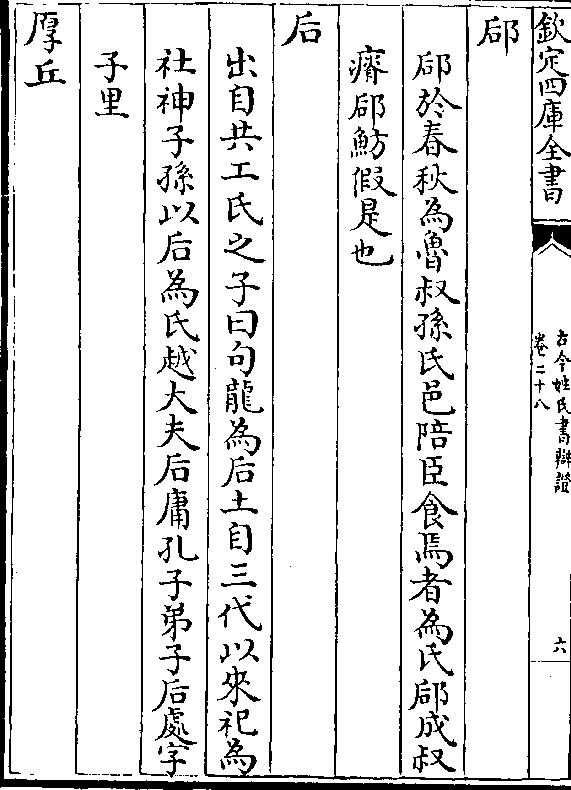 欽定四庫全書
古今姓氏書辯證
卷二十八
六
郈
郈於春秋為魯叔孫氏邑陪臣食焉者為氏郈成叔
瘠郈魴假是也
后
出自共工氏之子曰句龍為后土自三代以來祀為
社神子孫以后為氏越大夫后庸孔子弟子后處字
子里
厚丘